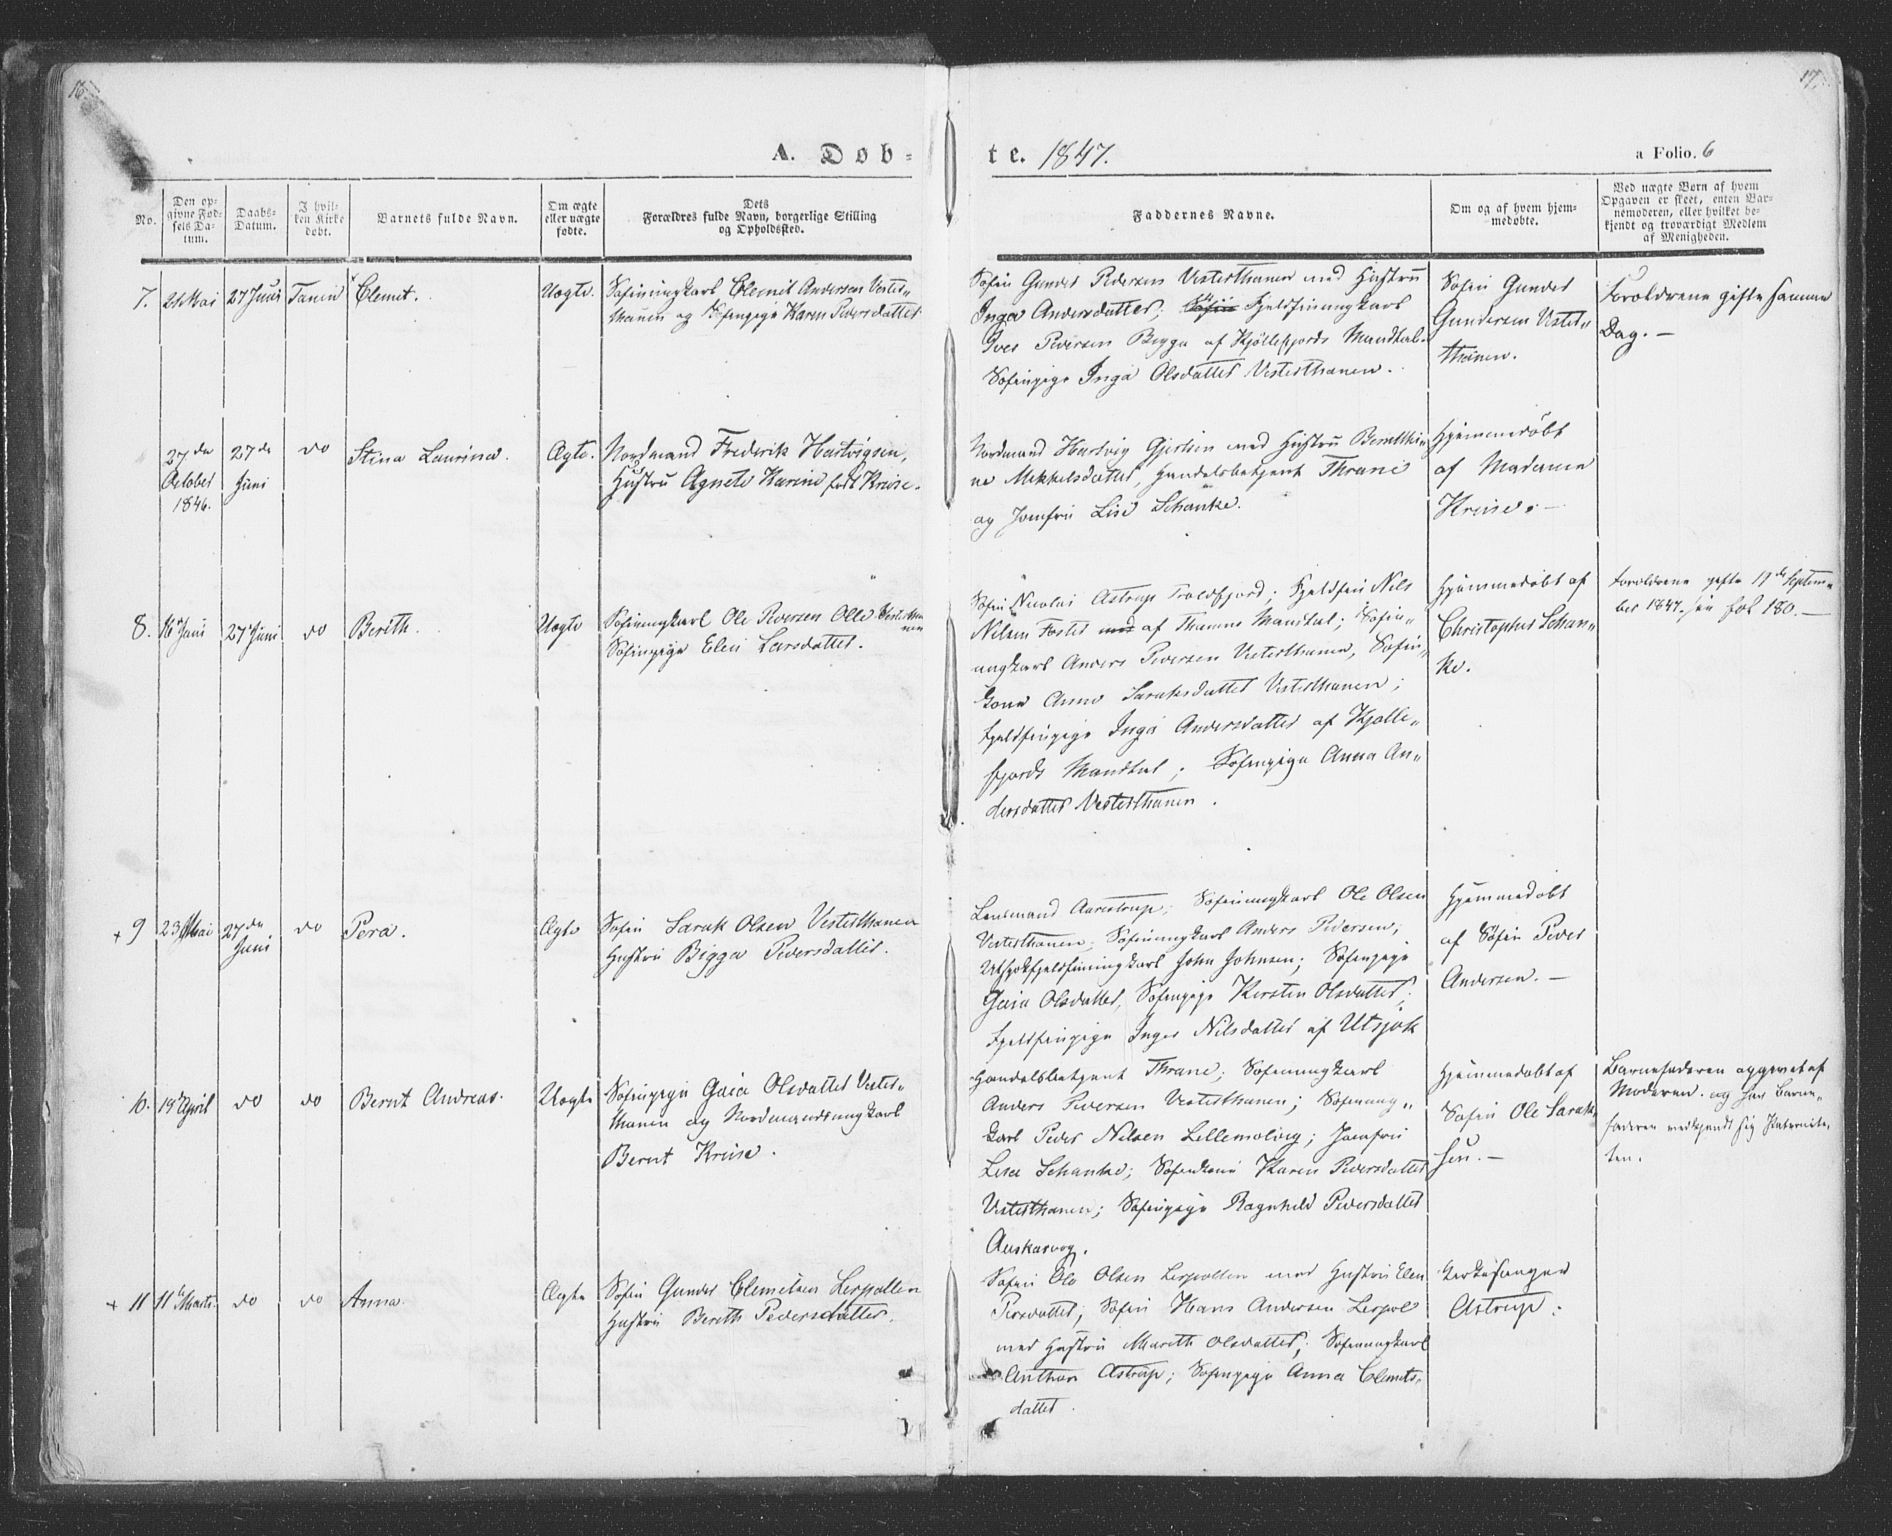 16.
17.
A. Døb-
te. 1847.
a Folio. 6
No.
Den op-
givne Fød-
sels Da-
tum.
Daabs-
Datum.
I hvil-
ken Kirke
døbt.
Barnets fulde Navn.
Om ægte
eller uægte
fødte.
Dets
Forældres fulde Navn, borgerlige Stilling
og Opholdssted.
Faddernes Navne.
Om og af hvem hjem-
medøbte.
Ved uægte Børn af hvem
Opgaven er skeet, enten Bar-
nemoderen, eller hvilket be-
kjendt og troværdigt Medlem
af Menigheden.
7.
Mai
27 Juni
Tanen
Clemet.
Uægte.
Søfinungkarl Clemet Andersen Vester-
thanen og Søfinpige Karen Pedersdatter
Søfin Gunder Pedersen Vesterthanen med Hustru
Inga Andersdatter; Søfin Fjeldfinungkarl
Iver Pedersen Bigga af Kjøllefjords Mandtal.
Søfinpige Inga Olsdatter Vesterthanen.
Søfin Gunder
Gundersen Vester-
thanen.
Forældrene gifte samme
Dag. —
27de
October
1846.
27de
Juni
do
Stina Laurina.
Ægte.
Nordmand Frederik Hartvigsen,
Hustru Agnete Karine født Kreise.
Nordmand Hartvig Gjertsen med Hustru Berethi-
ne Mikkelsdatter, Handelsbetjent Thrane
og Jomfru Lise Schanke.
Hjemmedøbt
af Madame
Kreise. —
8.
16 Juni
27 Juni
do
Berith.
Uægte
Søfinungkarl Ole Pedersen Olle Vestertha-
nen
Søfinpige Elen Larsdatter.
Søfin Nicolai Astrup Troldfjord; Fjeldfin Nils
Nilsen Foster med af Thanens Mandtal; Søfin-
ungkarl Anders Pedersen Vesterthanen, Søfin-
kone Anna Saraksdatter Vesterthanen;
Fjeldfinpige Inga Andersdatter af Kjølle-
fjords Mandtal; Søfinpige Anna An-
dersdatter Vesterthanen.
Hjemmedøbt af
Christopher Schan-
ke.
Forældrene gifte 19de Septem-
ber 1847. see fol 180. —
+ 9
23 Mai
27de
Juni
do
Pera.
Ægte
Søfin Sarak Olsen Vesterthanen
Hustru Bigga Pedersdatter.
Lensmand Aarestrup; Søfinungkarl Ole Olsen
Vesterthanen; Søfinungkarl Anders Pedersen,
Utsjokfjeldfinungkarl John Johnsen; Søfinpige
Gaia Olsdatter, Søfinpige Kersten Olsdatter;
Fjeldfinpige Inger Nilsdatter af Utsjok
Hjemmedøbt
af Søfin Peder
Andersen. —
10.
19 April
do
do
Bernt Andreas.
Uægte
Søfinpige Gaia Olsdatter Vester-
thanen og Nordmandsungkarl
Bernt Kreise.
Handelsbetjent Thrane; Søfinungkarl
Anders Pedersen Vesterthanen; Søfinung-
karl Peder Nilsen Lillemolvig; Jomfru
Lise Schanke; Søfinkone Karen Pedersdatter
Vesterthanen; Søfinpige Ragnhild Pedersdatter
Auskarvog.
Hjemmedøbt af
Søfin Ole Sarak-
sen. —
Barnefaderen opgivet af
Moderen. og har Barne-
faderen vedkjendt sig Paternite-
ten.
+ 11
11 Marts
do
do
Anna.
Ægte
Søfin Gunder Clemetsen Lerpollen
Hustru Berith Pedersdatter.
Søfin Ole Olsen Lerpollen med Hustru Elen
Persdatter; Søfin Hans Andersen Lerpol
med Hustru Marith Olsdatter; Søfinungkarl
Anthon Astrup; Søfinpige Anna Clemets-
datter.
Kirkesanger
Astrup.